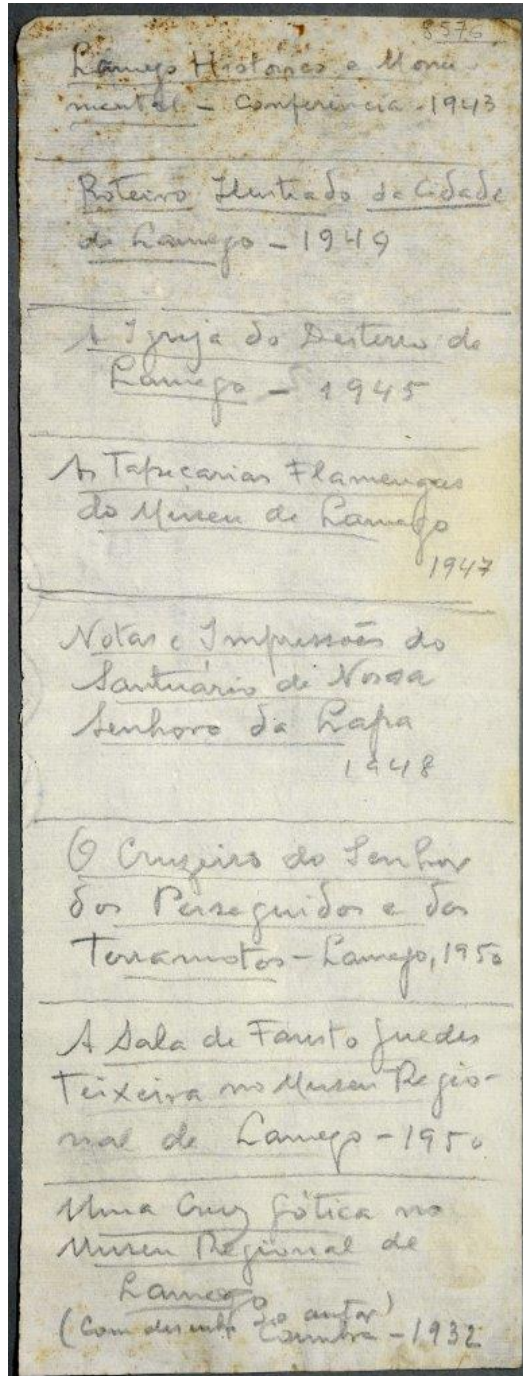 8576
Lamego Historico e Monu-
mental - Conferência - 1943
Roteiro Ilustrado da Cidade
de Lamego - 1949
A Igreja do Desterro de
Lamego - 1945
As Tapeçarias Flamengas
do Museu de Lamego
1947
Notas e Impressões do
Santuário de Nossa
Senhora da Lapa
1948
O Cruzeiro do Senhor
dos Perseguidos e dos
Terramotos - Lamego, 1950
A Sala de Fausto Guedes
Teixeira no Museu Regio-
nal de Lamego - 1950
Uma Cruz Gótica no
Museu Regional de
Lamego
(Com desenho do autor)
Coimbra - 1932